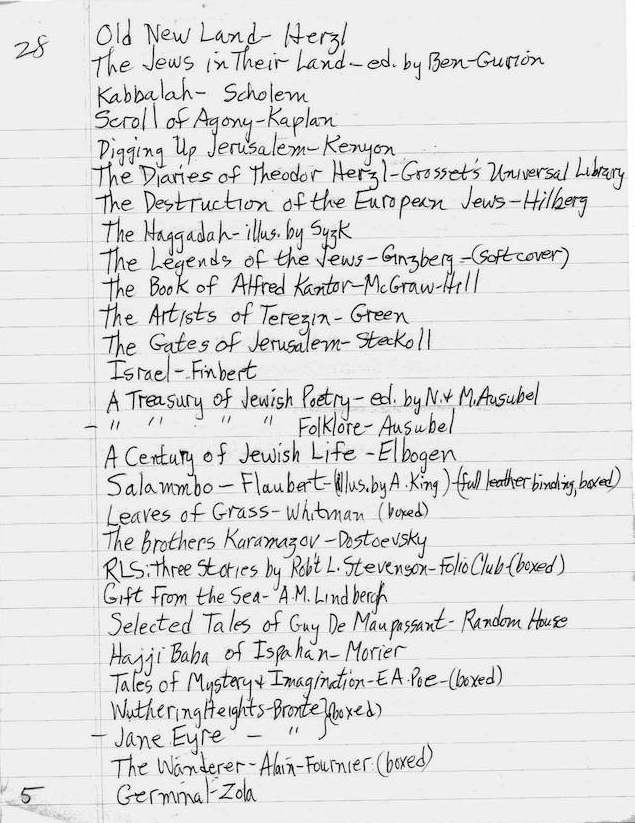 28
Old New Land- Herzl
The Jews in Their Land- ed. by Ben-Gurion
Kabbalah- Scholem
Scroll of Agony-Kaplan
Digging Up Jerusalem-Kenyon
The Diaries of Theodor Herzl-Grosset's Universal Library
The Destruction of the European Jews-Hilberg
The Haggadah-illus. by Syzk
The Legends of the Jews-Ginzberg-(softcover)
The Book of Alfred Kantor-McGraw-Hill
The Artists of Terezin-Green
The Gates of Jerusalem-Steckoll
Israel-Finbert
A Treasury of Jewish Poetry- ed. by N. & M. Ausubel
- " " " " Folklore-Ausubel
A Century of Jewish Life -Elbogen
Salammbo - Flaubert-(illus. by A. King)-(full leather binding, boxed)
Leaves of Grass-Whitman (boxed)
The Brothers Karamazov-Dostoevsky
RLS: Three Stories by Rob't L. Stevenson-Folio Club-(boxed)
Gift From the Sea- A.M. Lindbergh
Selected Tales of Guy De Maupassant- Random House
Hajji Baba of Ispahan-Morier
Tales of Mystery & Imagination-E.A. Poe-(boxed)
Wuthering Heights-Bronte} (boxed)
- Jane Eyre - " }
The Wanderer-Alain-Fournier (boxed)
5 Germinal-Zola